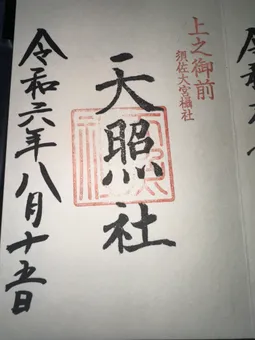 上之御前
須佐大宮攝社
天照社
令和六年八月十五日